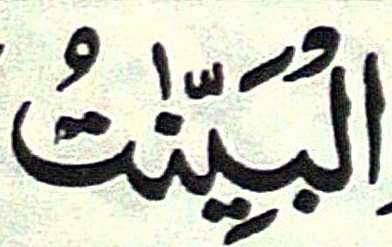 الْبَيِّنٰتُ